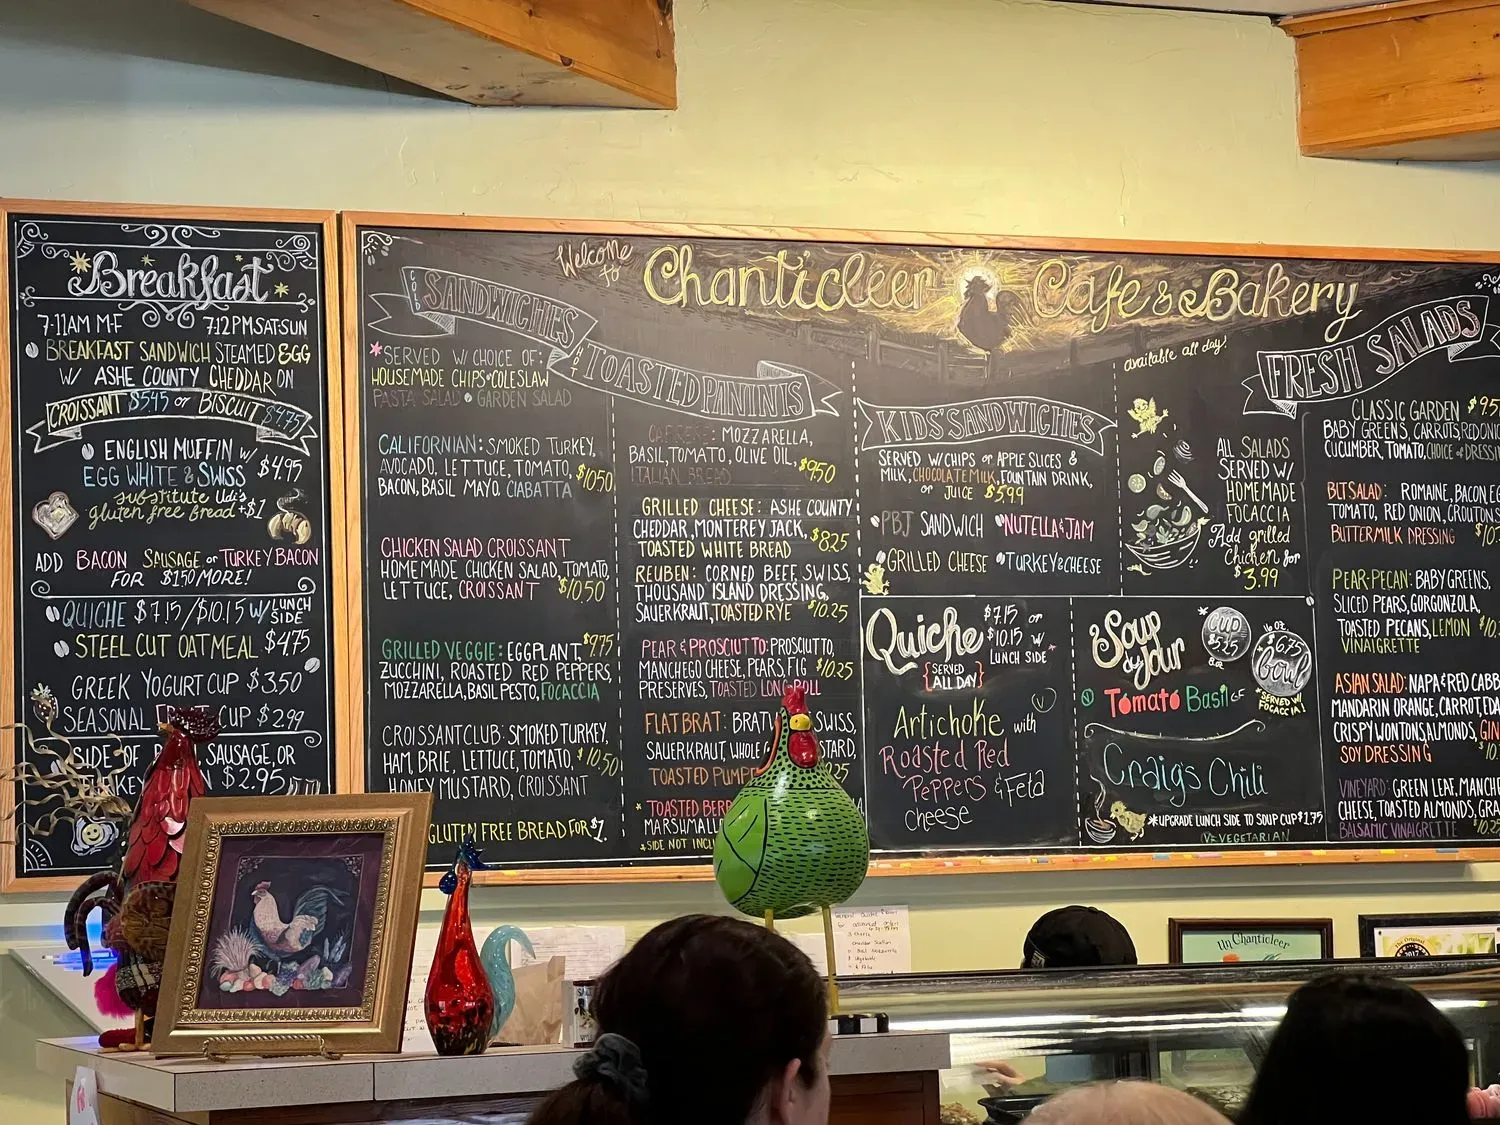 Breakfast
7-11AM M-F 7-12PM SAT-SUN
BREAKFAST SANDWICH STEAMED EGG
W/ ASHE COUNTY CHEDDAR ON
CROISSANT $5.45 or BISCUIT $4.75
ENGLISH MUFFIN W/
EGG WHITE & SWISS $4.95
substitute Udi's
gluten free bread +$1
ADD BACON SAUSAGE or TURKEY BACON
FOR $1.50 MORE!
QUICHE $7.15/$10.15 W/ LUNCH
SIDE
STEEL CUT OATMEAL $4.75
GREEK YOGURT CUP $3.50
SEASONAL CUP $2.99
SIDE OF SAUSAGE, OR
$2.95
Welcome
to
Chanticleer Cafe & Bakery
COLD SANDWICHES
HOT TOASTED PANINIS
*SERVED W/ CHOICE OF:
HOUSEMADE CHIPS • COLESLAW
PASTA SALAD • GARDEN SALAD
CALIFORNIAN: SMOKED TURKEY,
AVOCADO, LETTUCE, TOMATO, $10.50
BACON, BASIL MAYO. CIABATTA
CHICKEN SALAD CROISSANT
HOMEMADE CHICKEN SALAD, TOMATO,
LETTUCE, CROISSANT $10.50
GRILLED VEGGIE: EGGPLANT, $9.75
ZUCCHINI, ROASTED RED PEPPERS,
MOZZARELLA, BASIL PESTO, FOCACCIA
CROISSANT CLUB: SMOKED TURKEY,
HAM, BRIE, LETTUCE, TOMATO, $10.50
HONEY MUSTARD, CROISSANT
GLUTEN FREE BREAD FOR $1.
CAPRESE: MOZZARELLA,
BASIL, TOMATO, OLIVE OIL, $9.50
ITALIAN BREAD
GRILLED CHEESE: ASHE COUNTY
CHEDDAR, MONTEREY JACK, $8.25
TOASTED WHITE BREAD
REUBEN: CORNED BEEF, SWISS,
THOUSAND ISLAND DRESSING,
SAUERKRAUT, TOASTED RYE $10.25
PEAR & PROSCIUTTO: PROSCIUTTO,
MANCHEGO CHEESE, PEARS, FIG $10.25
PRESERVES, TOASTED LONG ROLL
FLAT BRAT: SWISS,
SAUERKRAUT, WHOLE
TOASTED
* TOASTED
MARSHMALL
*SIDE NOT
KIDS' SANDWICHES
SERVED W/CHIPS or APPLE SLICES &
MILK, CHOCOLATE MILK, FOUNTAIN DRINK,
or JUICE $5.99
PBJ SANDWICH • NUTELLA & JAM
GRILLED CHEESE • TURKEY & CHEESE
Quiche $7.15 or
$10.15 W/
LUNCH SIDE*
{SERVED
ALL DAY}
V
Artichoke with
Roasted Red
Peppers & Feta
cheese
available all day!
FRESH SALADS
ALL SALADS
SERVED W/
HOMEMADE
FOCACCIA
Add grilled
chicken for
$3.99
Soup
du Jour
CUP
$5.25
8 oz
16 oz
$6.75
Bowl
*SERVED W/
FOCACCIA!
V Tomato Basil GF
Craig's Chili
*UPGRADE LUNCH SIDE TO SOUP CUP $1.75
V=VEGETARIAN
CLASSIC GARDEN $9.5
BABY GREENS, CARROTS, RED ONIO
CUCUMBER, TOMATO, CHOICE of DRESSI
BLT SALAD: ROMAINE, BACON, EG
TOMATO, RED ONION, CROUTONS
BUTTERMILK DRESSING $10.
PEAR-PECAN: BABY GREENS,
SLICED PEARS, GORGONZOLA,
TOASTED PECANS, LEMON $10.
VINAIGRETTE
ASIAN SALAD: NAPA & RED CABB
MANDARIN ORANGE, CARROT, EDA
CRISPY WONTONS, ALMONDS, GIN
SOY DRESSING $10.
VINEYARD: GREEN LEAF, MANCHE
CHEESE, TOASTED ALMONDS, GRA
BALSAMIC VINAIGRETTE $10.25
Un Chanticleer
The Original
2017